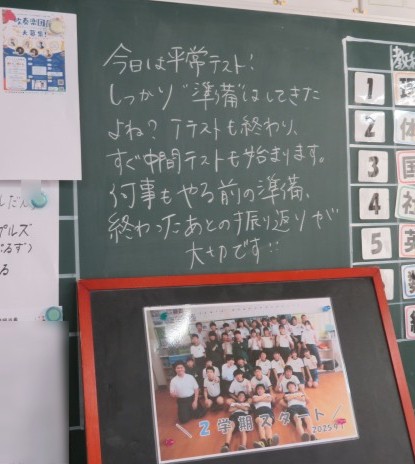 今日は平常テスト!
しっかり"準備"はしてきた
よね？Tテストも終わり、
すぐ中間テストも始まります。
何事もやる前の準備、
終わったあとの振り返りが
大切です!!
教
1
2
3 国
4 社
5 英
数
プルズ
る
\2学期スタート/
2025.9.1